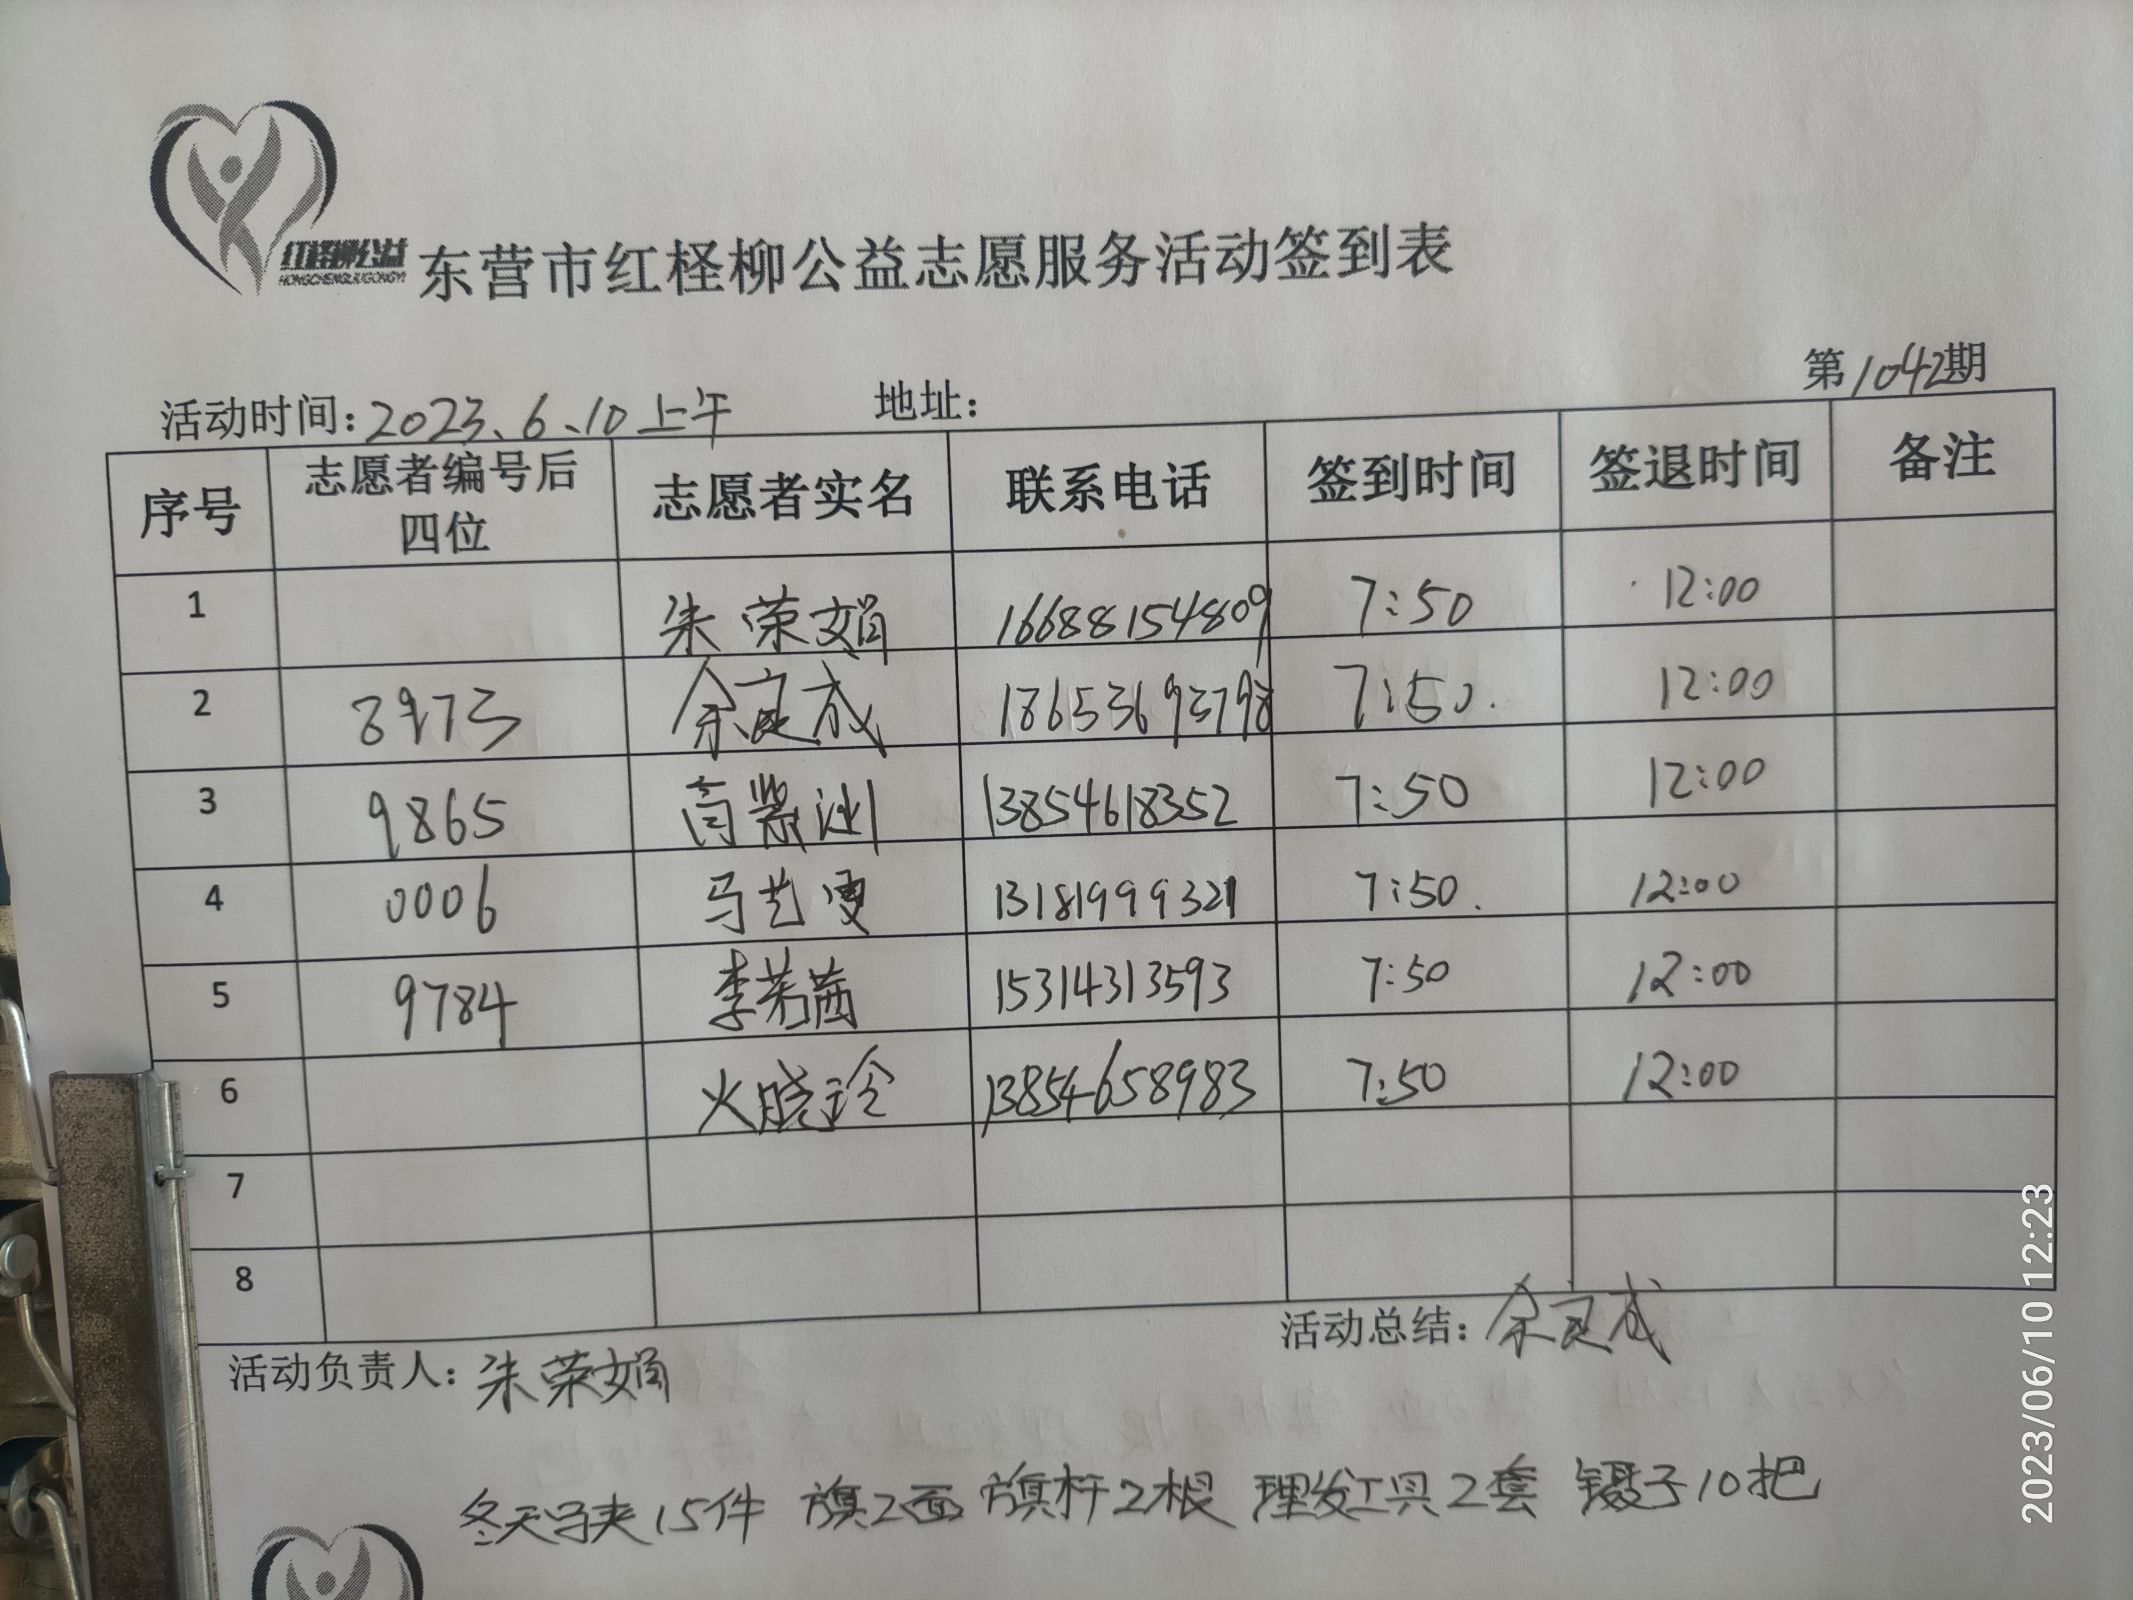 红柽柳公益
HONGCHENGLIUGONGYI
东营市红柽柳公益志愿服务活动签到表
第1042期
活动时间：2023、6、10上午 地址：
序号 志愿者编号后四位 志愿者实名 联系电话 签到时间 签退时间 备注
1 朱荣娟 16688154809 7:50 12:00
2 8973 余定成 18653693798 7:50. 12:00
3 9865 高紫洲 13854618352 7:50 12:00
4 0006 马艺雯 13181999321 7:50. 12:00
5 9784 李若茜 15314313593 7:50 12:00
6 火晓玲 13854658983 7:50 12:00
7
8
活动负责人：朱荣娟 活动总结：余定成
冬天马夹15件 旗2面 旗杆2根 理发工具2套 镊子10把
2023/06/10 12:23